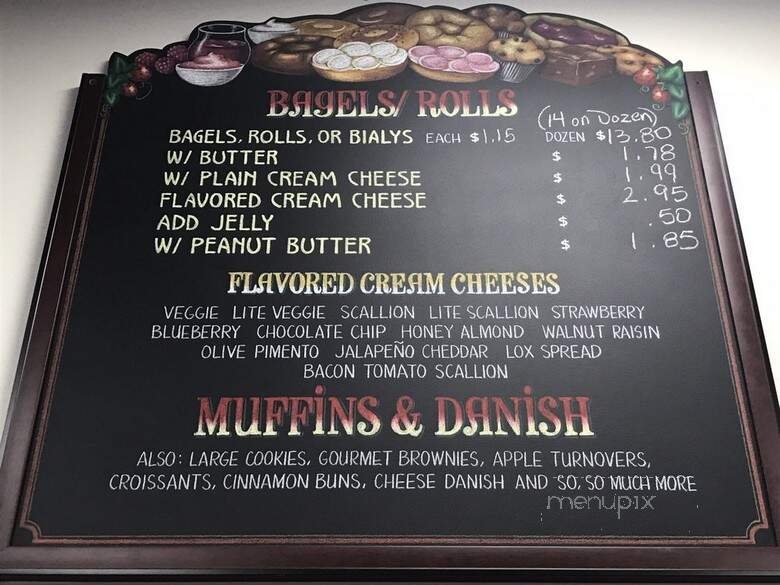 BAGELS/ ROLLS
(14 on Dozen)
BAGELS, ROLLS, OR BIALYS EACH $1.15 DOZEN $13.80
W/ BUTTER $ 1.78
W/ PLAIN CREAM CHEESE $ 1.99
FLAVORED CREAM CHEESE $ 2.95
ADD JELLY $ .50
W/ PEANUT BUTTER $ 1.85
FLAVORED CREAM CHEESES
VEGGIE LITE VEGGIE SCALLION LITE SCALLION STRAWBERRY
BLUEBERRY CHOCOLATE CHIP HONEY ALMOND WALNUT RAISIN
OLIVE PIMENTO JALAPEÑO CHEDDAR LOX SPREAD
BACON TOMATO SCALLION
MUFFINS & DANISH
ALSO: LARGE COOKIES, GOURMET BROWNIES, APPLE TURNOVERS,
CROISSANTS, CINNAMON BUNS, CHEESE DANISH AND SO, SO MUCH MORE
menupix